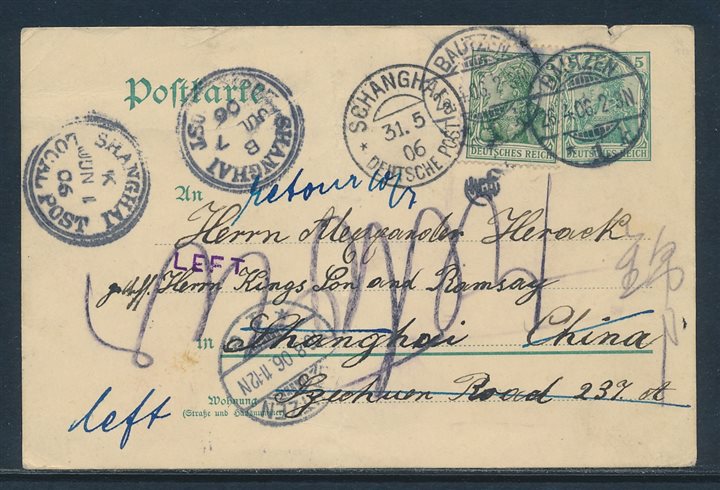 Postkarte
5
BAUTZEN
BAUTZEN
06.2-3N
DEUTSCHES REICH
DEUTSCHES REICH
SCHANGHAI
31.5
06
DEUTSCHE POST
SHANGHAI
B
1
JUL
06
SHANGHAI
K
JUN 1
06
LOCAL POST
retour
An
Herrn Alexander Herack
LEFT
Herrn Kings Son and Ramsay
In
Shanghai China
8.06.11-12N
Wohnung
(Straße und Hausnummer)
Szechuen Road 237. A
left